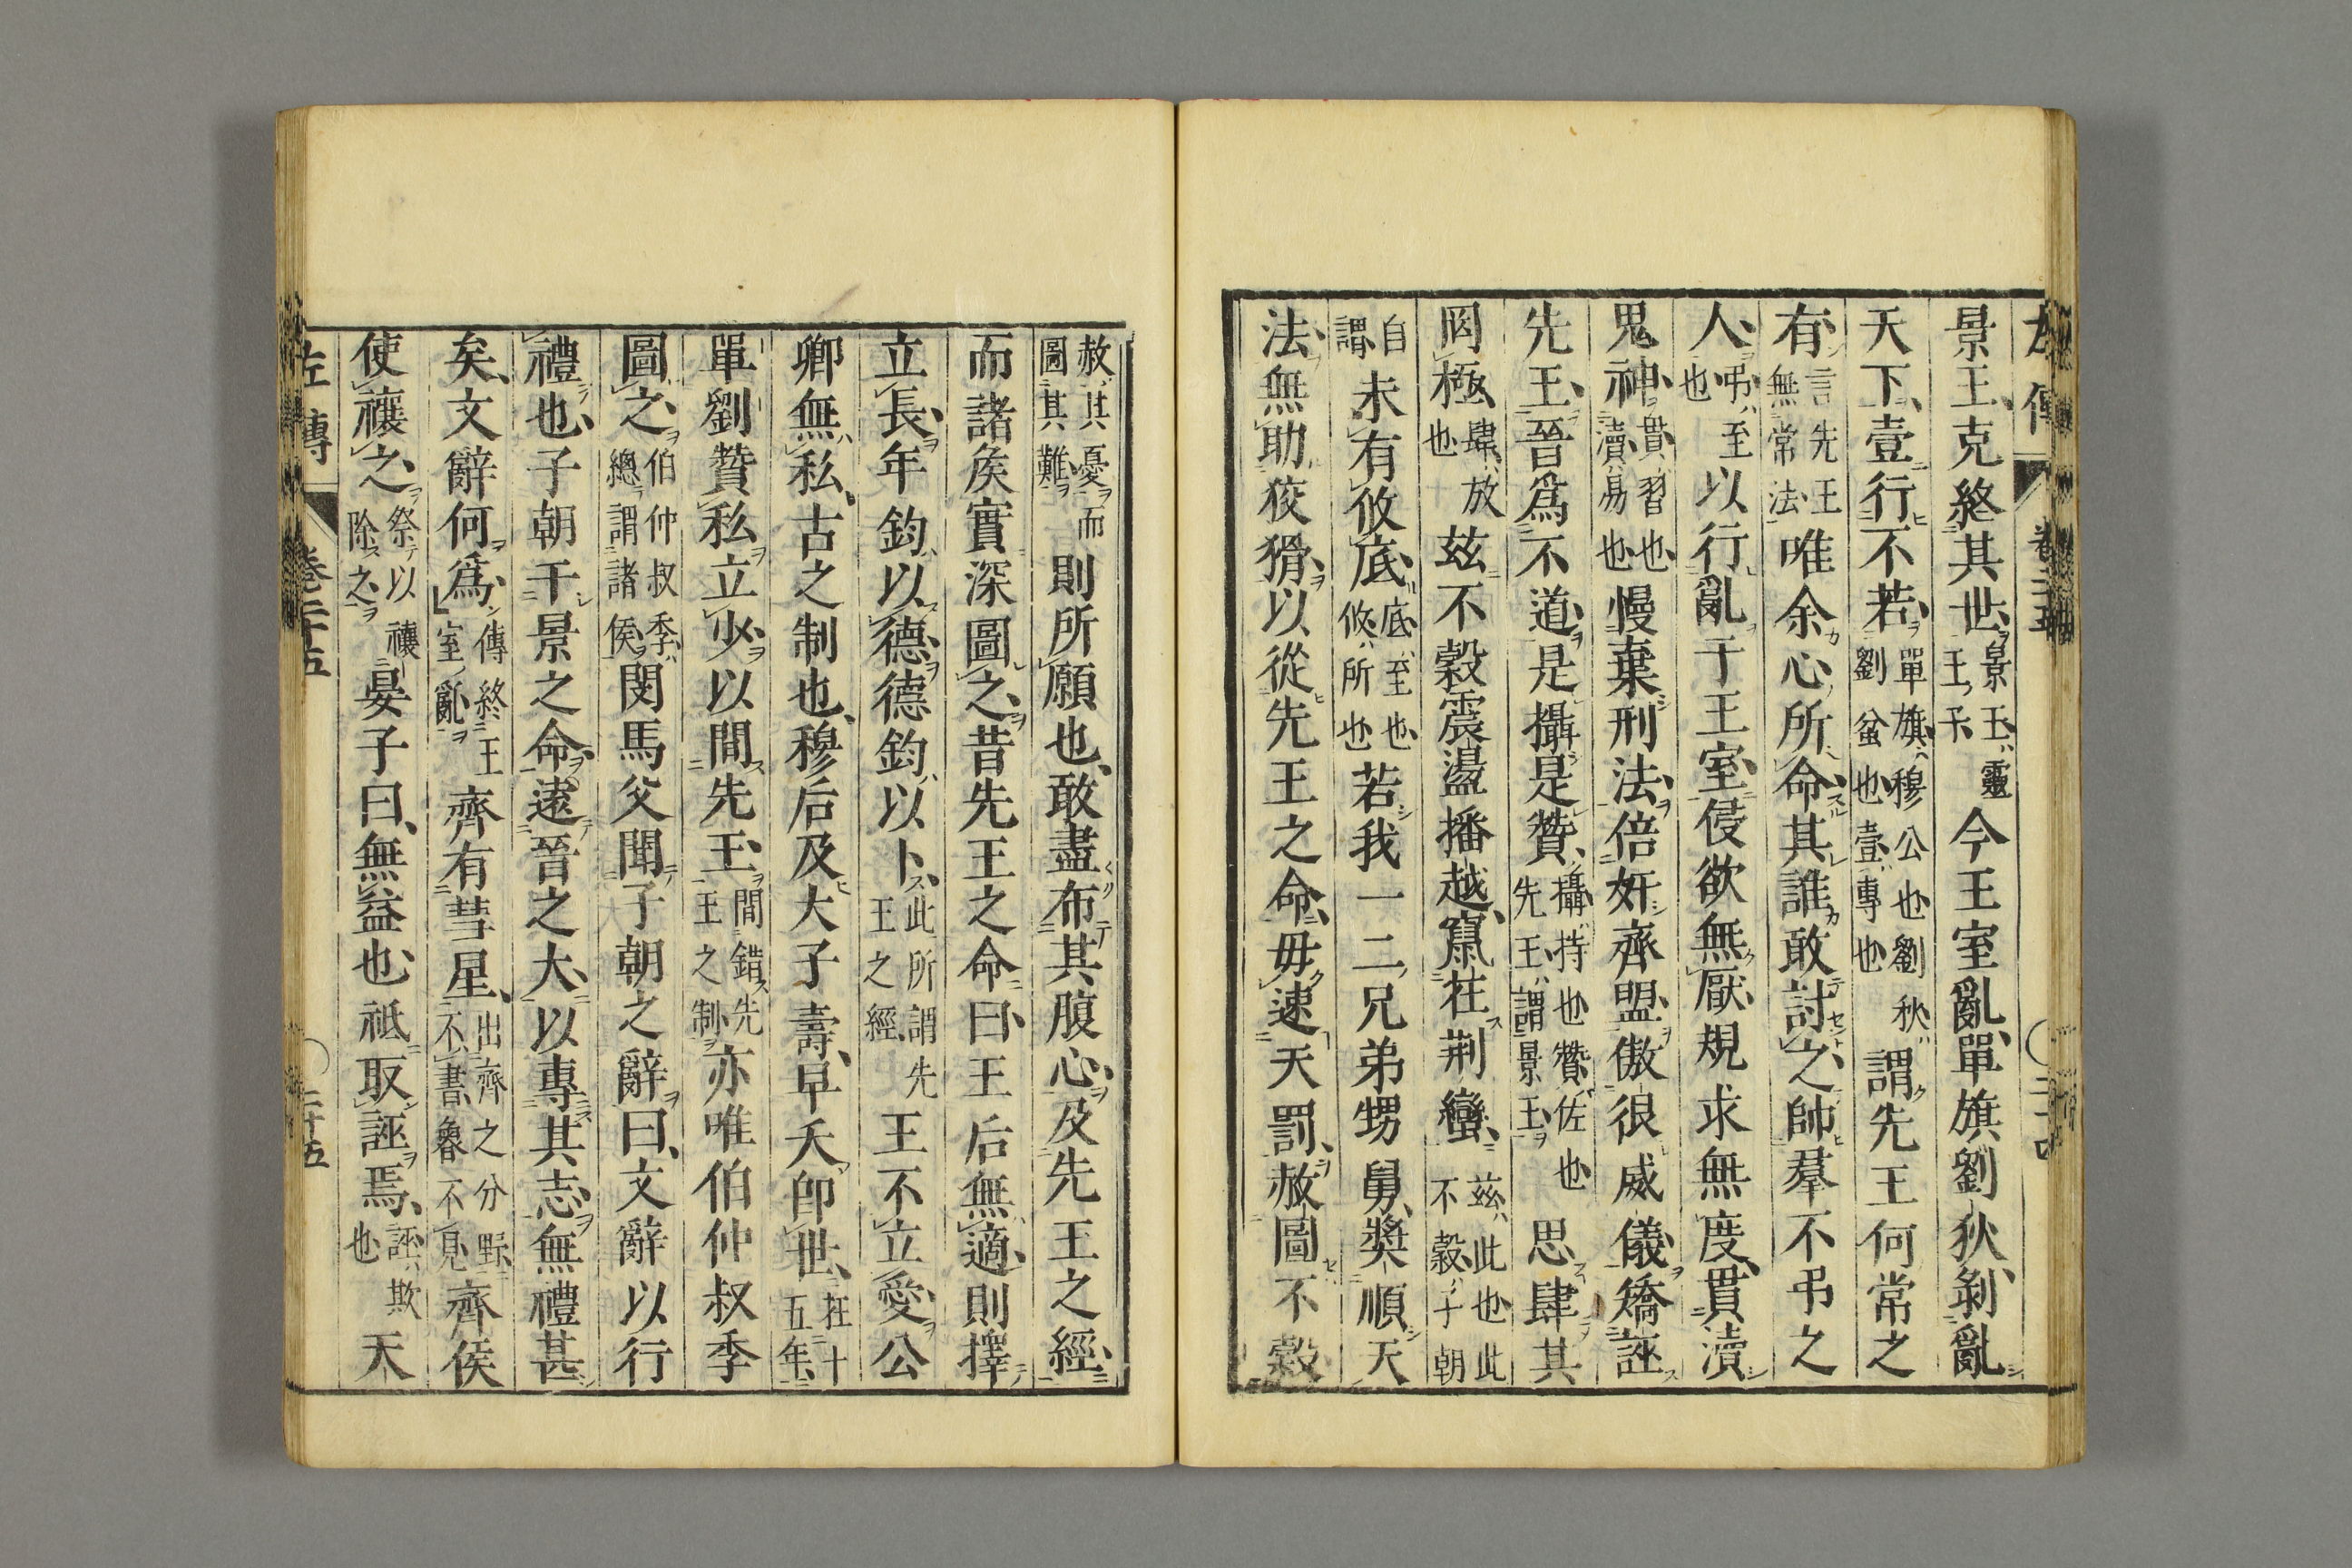 左傳 卷二十五 二十四
景王克終其世景王靈王子今王室亂單旗劉狄剝亂
天下壹行不若單旗穆公也劉狄劉蚠也壹專也謂先王何常之
有言先王無常法唯余心所命其誰敢討之帥羣不弔之
人弔至也以行亂于王室侵欲無厭規求無度貫瀆
鬼神貫習也瀆易也慢棄刑法倍奸齊盟傲很威儀矯誣
先王晉爲不道是攝是贊攝持也贊佐也先王謂景王思肆其
罔極肆放也玆不穀震盪播越竄在荆蠻玆此也此不穀子朝
自謂未有攸底底至也攸所也若我一二兄弟甥舅奬順天
法無助狡猾以從先王之命毋速天罰赦圖不穀
赦其憂而圖其難則所願也敢盡布其腹心及先王之經
而諸矦實深圖之昔先王之命曰王后無適則擇
立長年鈞以德德鈞以卜此所謂先王之經王不立愛公
卿無私古之制也穆后及大子壽早夭卽世在十五年
單劉贊私立少以間先王間錯先王之制亦唯伯仲叔季
圖之伯仲叔季總謂諸侯閔馬父聞子朝之辭曰文辭以行
禮也子朝干景之命遠晉之大以專其志無禮甚
矣文辭何爲傳終王室亂齊有彗星出齊之分野不書魯不見齊侯
使禳之祭以禳除之晏子曰無益也祗取誣焉誣欺也天
左傳 卷二十五 二十五